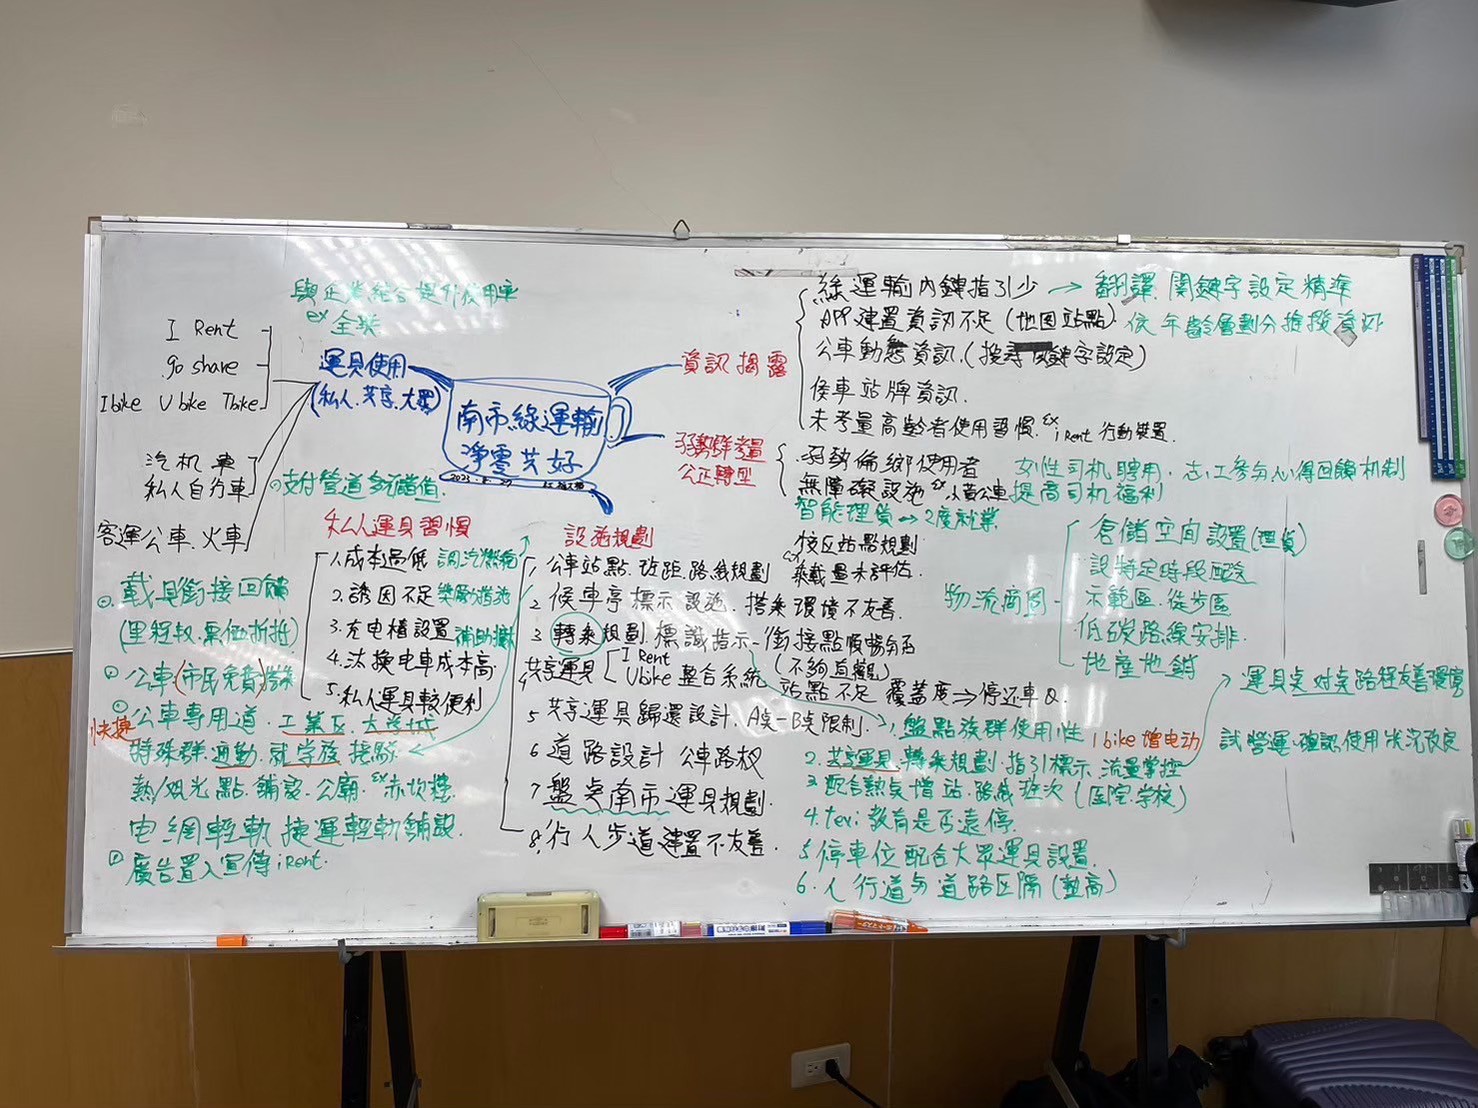 與企業結合提升使用率
ex 全聯
I Rent
go share
Ibike Ubike Tbike
運具使用
(私人.共享.大眾)
汽机車
私人自行車
客運公車.火車
南市綠運輸
淨零共好
資訊揭露
弱勢群考量
公正轉型
綠運輸內鍵指引少 → 翻譯.関鍵字設定精準
APP建置資訊不足(地図站點).依年齡層劃分推撥資訊
公車動態資訊.(搜尋関鍵字設定)
侯車站牌資訊.
未考量高齡者使用習慣.ex iRent 行動裝置.
弱勢偏鄉使用者
女性司机聘用,志工參与心得回饋机制
無障礙設施 ex 小黃公車
提高司机福利
智能理貨→2度就業
校区站點規劃
ex 乘載量未評估.
物流商圈
倉儲空间設置(理貨)
設特定時段配送
示範區.徒步區
低碳路線安排.
地產地銷
。支付管道多元儲值.
私人運具習慣
1.成本過低 調汽燃稅
2.誘因不足 獎勵措施
3.充电樁設置 補助擴大
4.汰換电車成本高.
5.私人運具較便利
設施規劃
1.公車站點.班距.路線規劃
2.候車亭標示設施.搭乘環境不友善.
3.轉乘規劃.標識指示-銜接點順暢与否
(不夠直觀)
4.共享運具 I Rent Ubike 整合系統 站點不足 覆蓋度⇒停还車Q.
5 共享運具歸還設計.A点-B点限制.
6 道路設計 公車路权
7 盤点南市運具規劃.
8.行人步道建置不友善.
載具銜接回饋
(里程數.累価折抵)
公車(市民免費)搭乘
公車專用道.工業区.大学城
快捷
特殊群通勤.就学族接駁.
熱/观光點.鋪設.公廟.ex 赤崁樓.
电網輕軌 捷運輕軌鋪設.
廣告置入宣傳iRent.
1.盤點族群使用性
Ibike增电动
2.共享運具.轉乘規劃.指引標示.流量掌控
3.配合熱点增站.路線班次(医院.学校)
4.texi 教育是否遠停.
5.停車位配合大眾運具設置.
6.人行道与道路区隔(墊高)
運具点对点路程友善環境
試營運.確認使用狀況改定